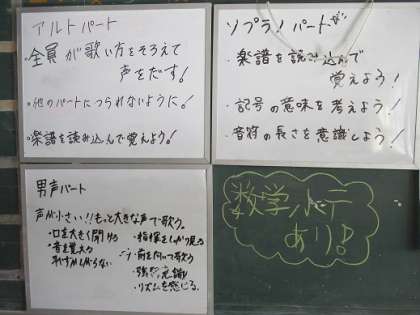 アルトパート
・全員が歌い方をそろえて
声をだす!
・他のパートにつられないように!
・楽譜を読み込んで覚えよう!
ソプラノパートが
・楽譜を読み込んで
覚えよう!
・記号の意味を考えよう!
・音符の長さを意識しよう!
男声パート
声が小さい!!もっと大きな声で歌う。
・口を大きく開ける
・音を覚える
・指揮をしっかり見る
・前を向いて歌う
・強弱意識
・リズムを感じる。
数学小テ
あり!